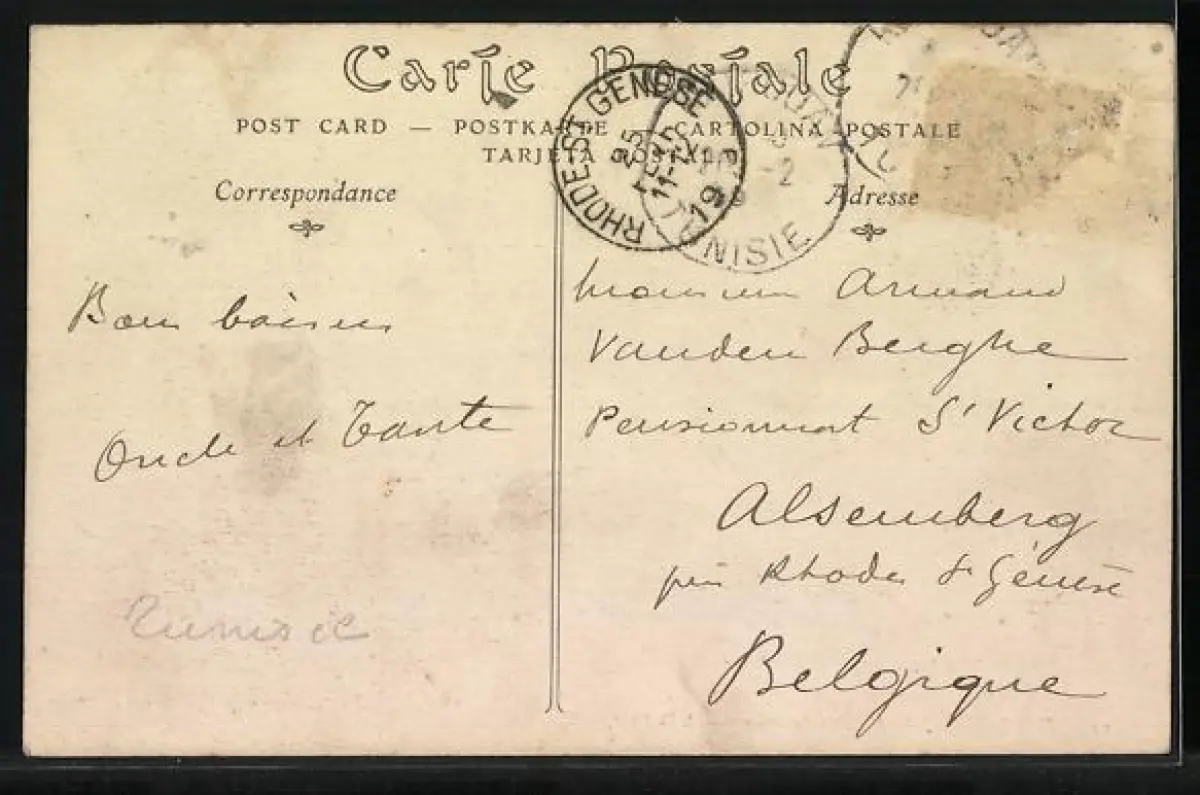 Carte Postale
POST CARD — POSTKARTE — CARTOLINA POSTALE
TARJETA POSTAL
Correspondance
Adresse
RHODE-ST-GENESE
25
11-12
19
TUNISIE
Bons baisers
Oncle et Tante
Monsieur Armand
Vanden Berghe
Pensionnat St Victor
Alsemberg
près Rhode St Génèse
Belgique
Tunisie